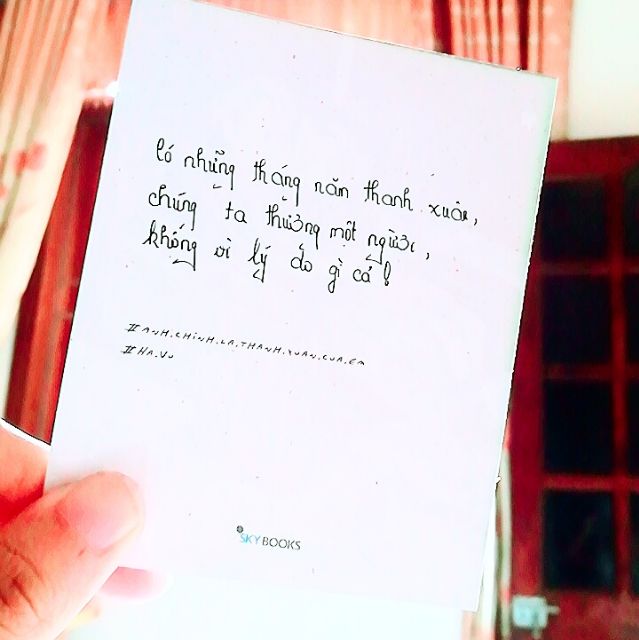 Có những tháng năm thanh xuân,
chúng ta thương một người,
không vì lý do gì cả!
#ANH.CHÍNH.LÀ.THANH.XUÂN.CỦA.EM
#HA.VU
SKYBOOKS